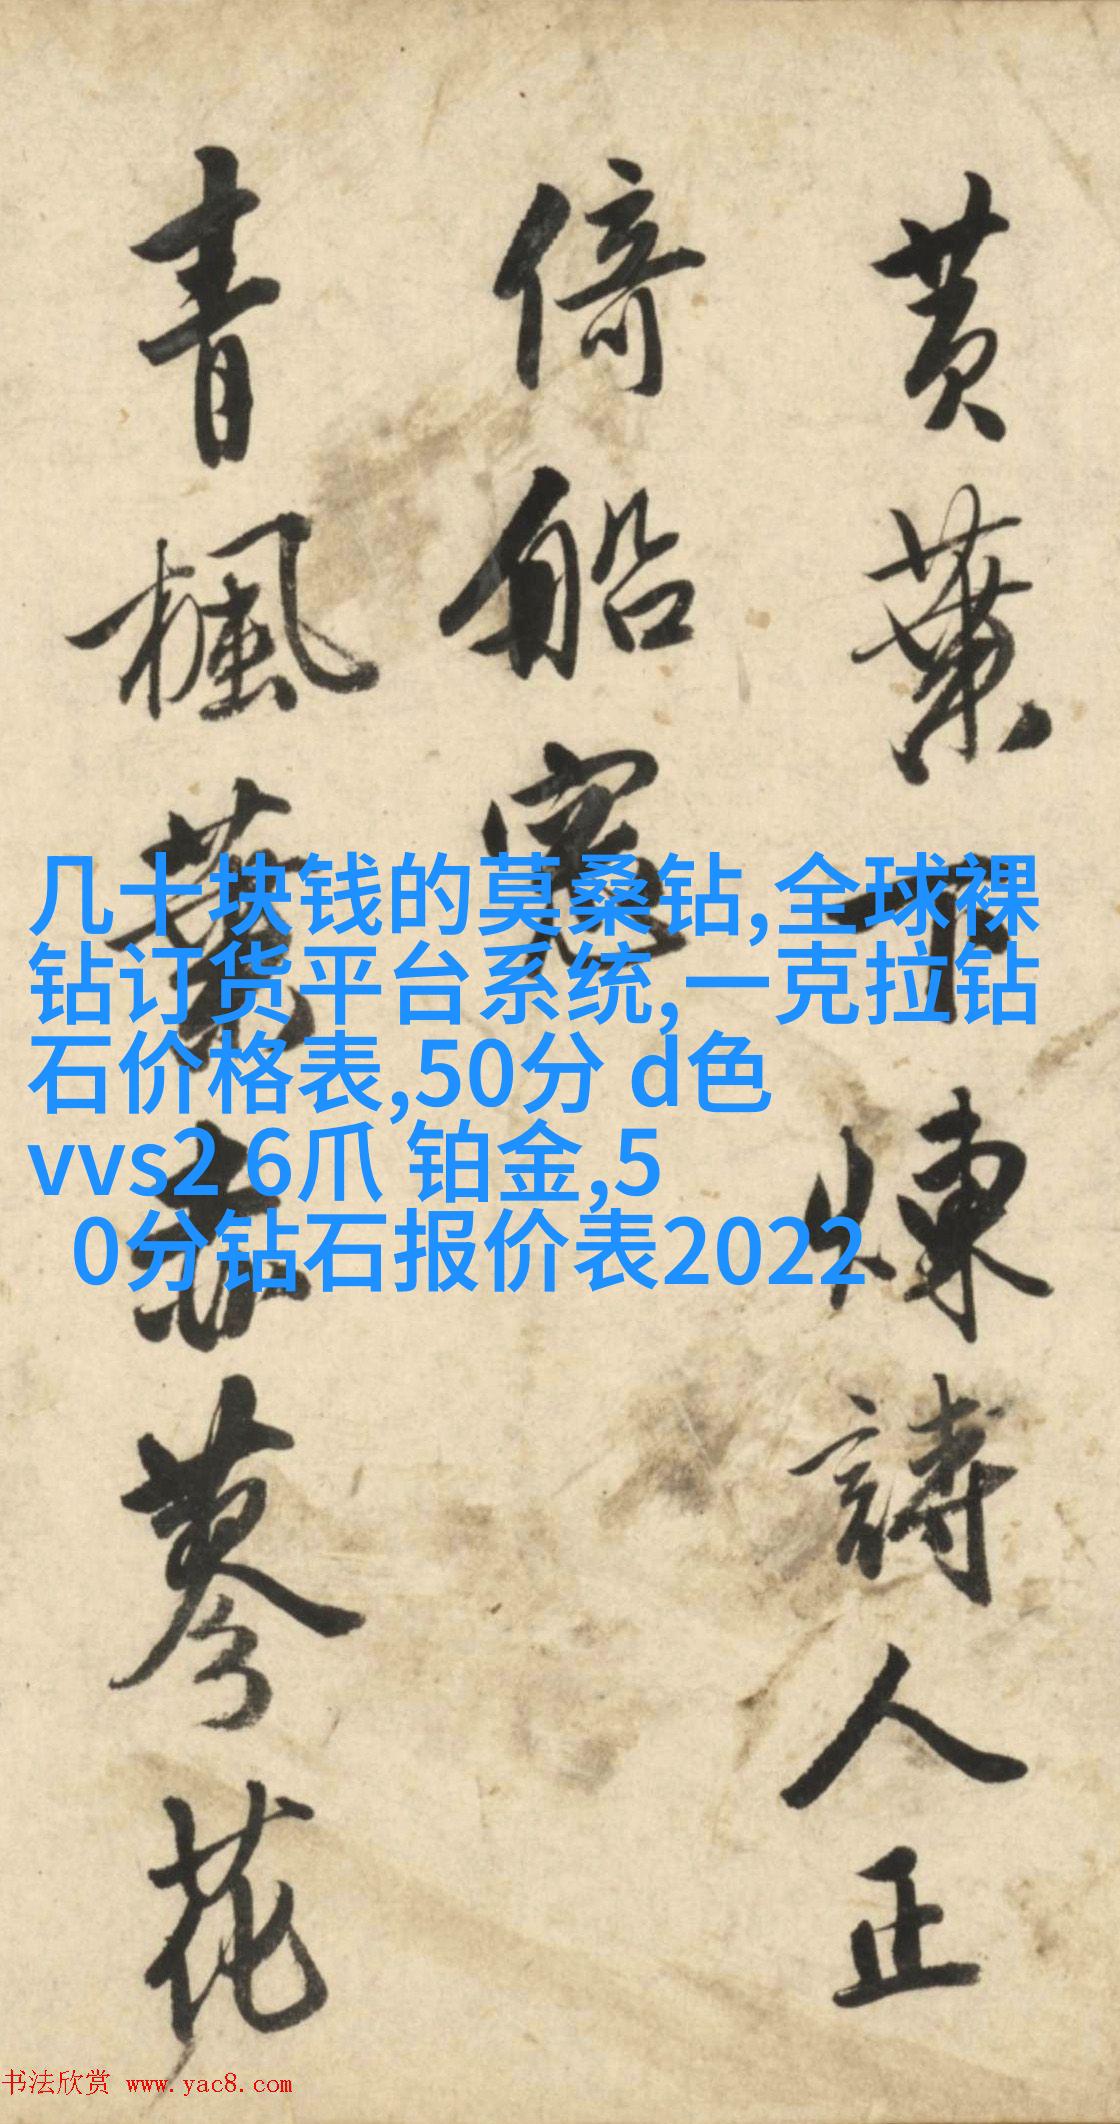 黄葉下煉詩人正
倚船窓
青楓葉赤蓼花
几十块钱的莫桑钻,全球裸
钻订货平台系统,一克拉钻
石价格表,50分 d色
vvs2 6爪 铂金,5
0分钻石报价表2022
书法欣赏 www.yac8.com